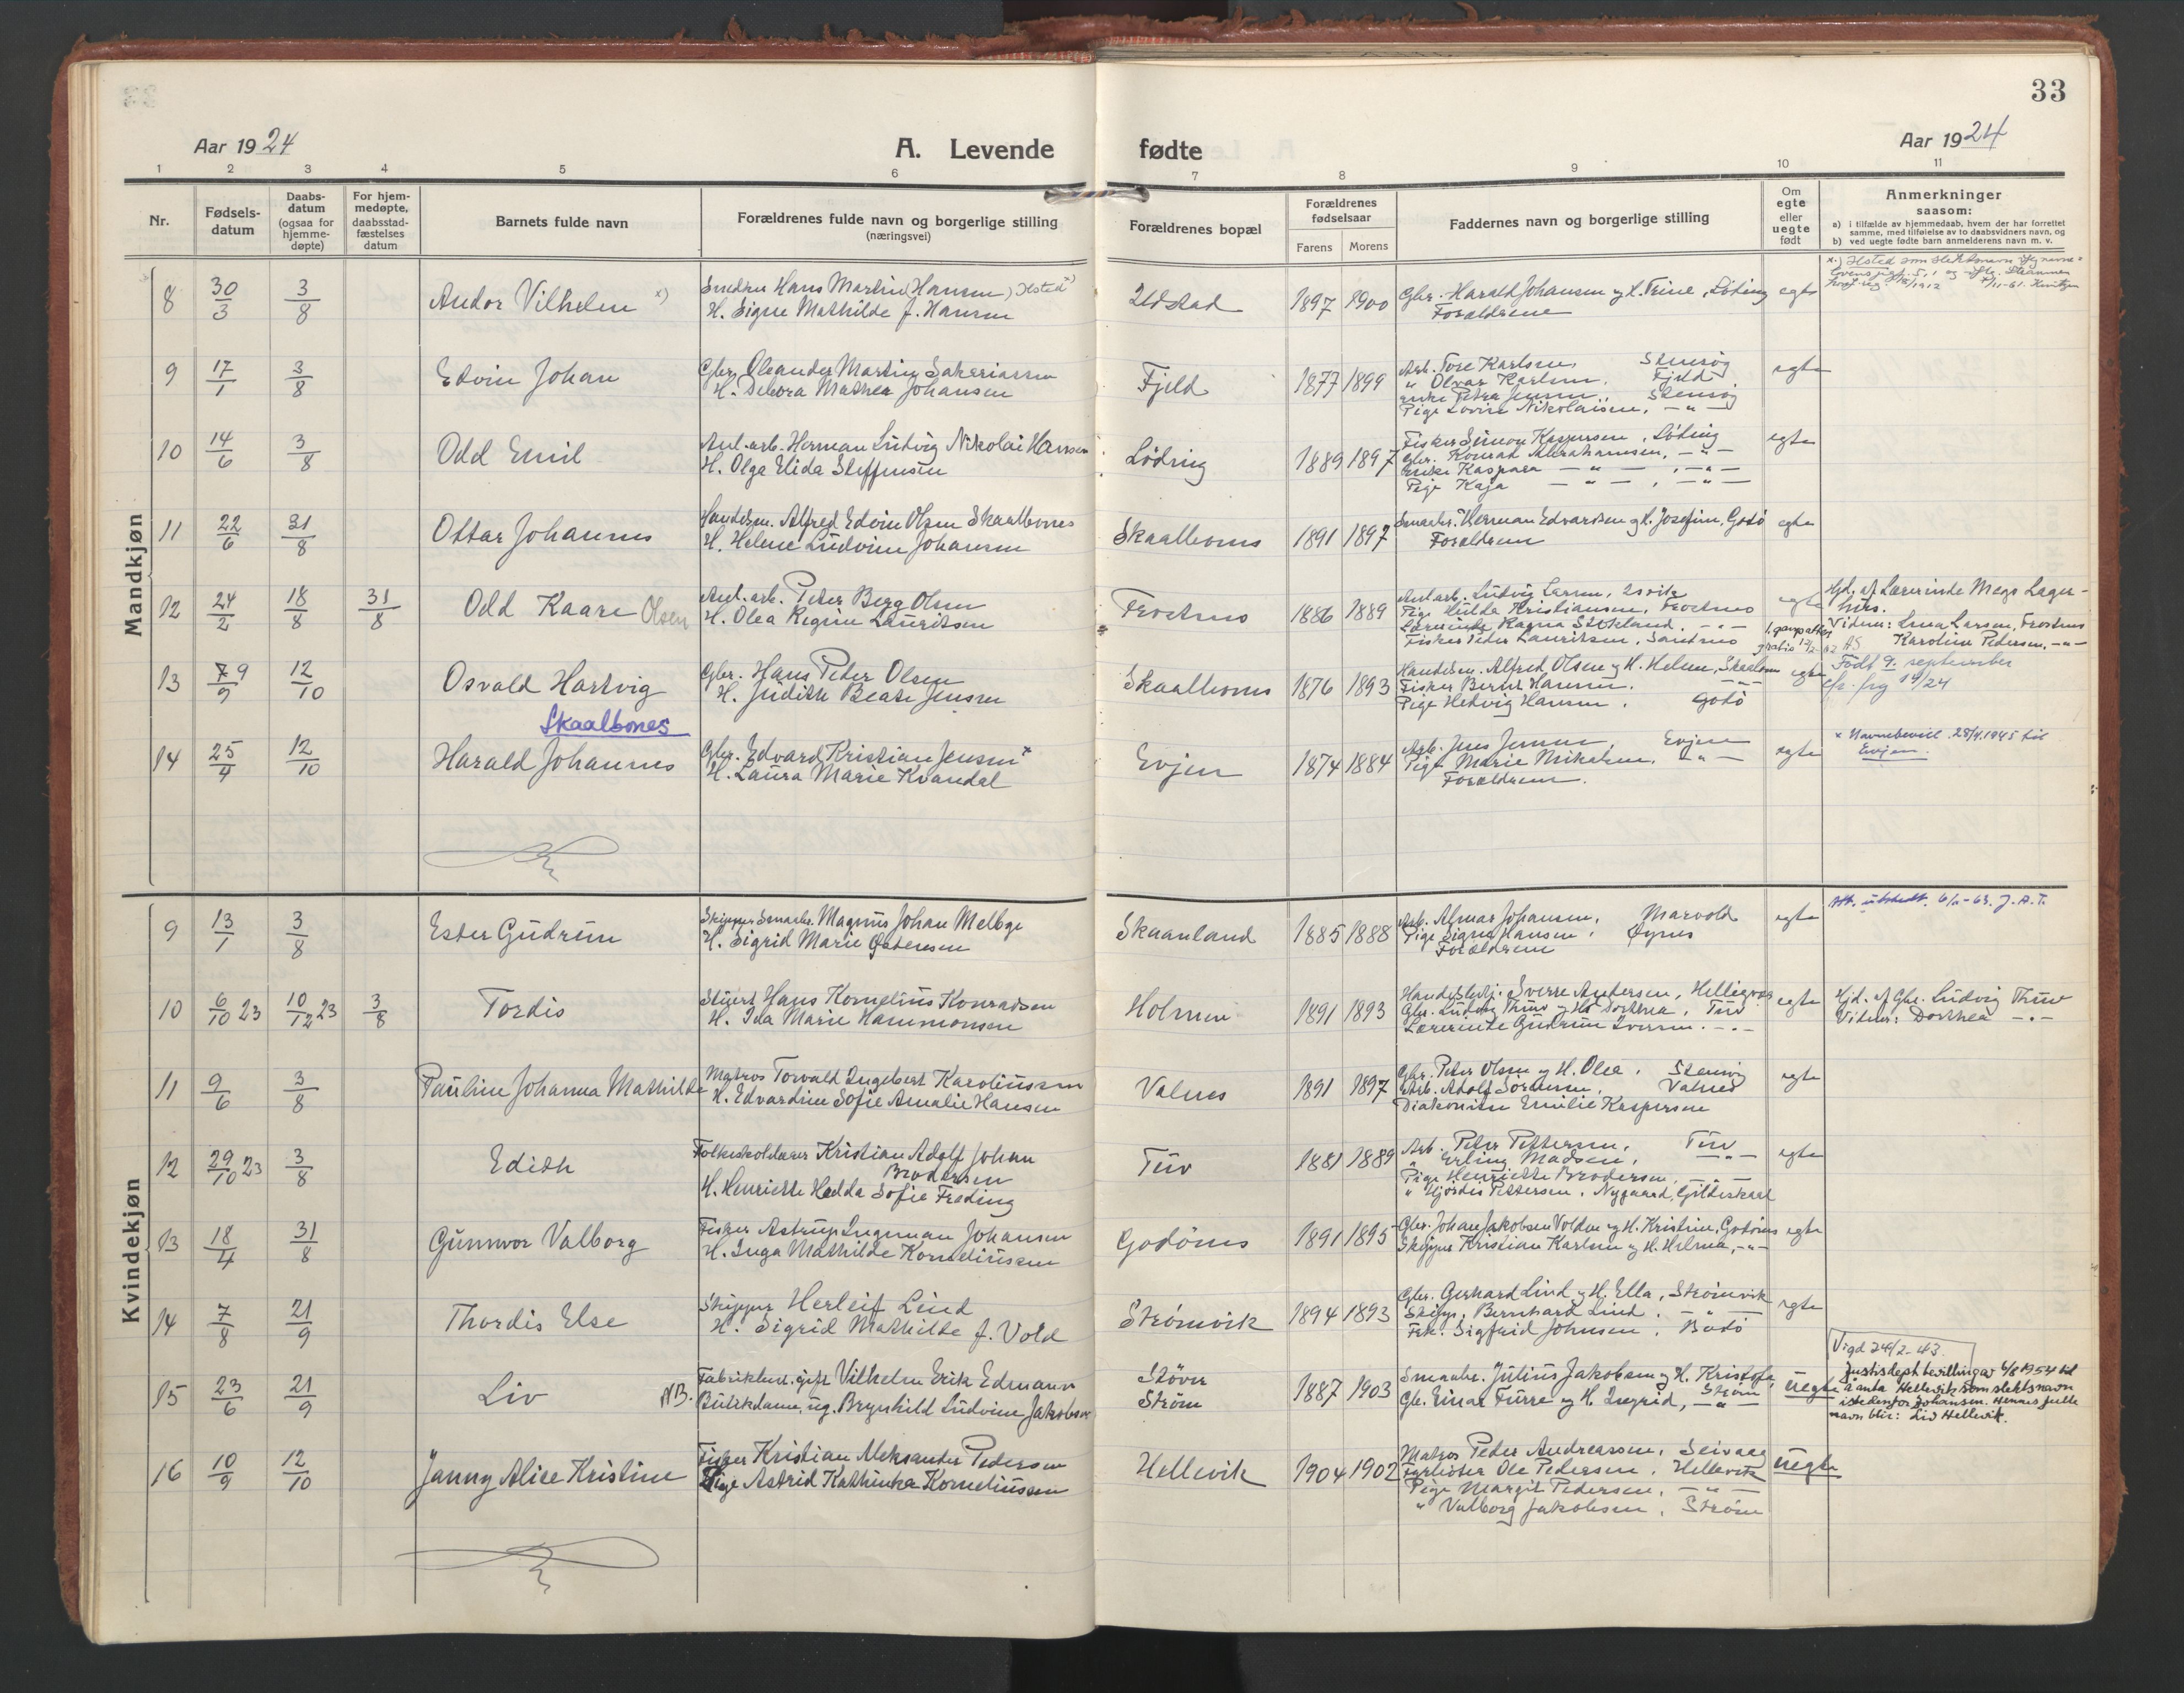 33
Aar 1924
A. Levende fødte
Aar 1924
1 2 3 4 5 6 7 8 9 10 11
Nr.
Fødsels-
datum
Daabs-
datum
(ogsaa for
hjemme-
døpte)
For hjem-
medøpte,
daabsstad-
fæstelses
datum
Barnets fulde navn
Forældrenes fulde navn og borgerlige stilling
(næringsvei)
Forældrenes bopæl
Forældrenes
fødselsaar
Farens Morens
Faddernes navn og borgerlige stilling
Om
egte
eller
uegte
født
Anmerkninger
saasom:
a) i tilfælde av hjemmedaab, hvem der har forrettet
samme, med tilføielse av to daabsvidners navn, og
b) ved uegte fødte barn anmelderens navn m. v.
Mandkjøn
8 30/3 3/8 Andor Vilhelm x)
Smeden Hans Martin (Hansen) Ilsted x)
H. Signe Mathilde f. Hansen
Udstad 1897 1900
Gbr. Harald Johansen og H. Trine, Löding
Forældrene
egte
x) Ilsted som slektsnavn
9 17/1 3/8 Edvin Johan
Gbr. Oleander Martin Sakariassen
H. Debora Mathea Johansen
Fjeld 1877 1899
Arb. Tore Karlsen, Stensög
" Olvar Karlsen, Fjeld
enke Petra Jensen, Stensög
Pige Lovise Nikolaisen, -"-
egte
10 14/6 3/8 Odd Emil
Anl. arb. Herman Ludvig Nikolai Hansen
H. Olga Elida Steffensen
Löding 1889 1897
Fisker Simon Kaspersen, Löding
Gbr. Konrad Abrahamsen, -"-
Enke Kaspara -"-, -"-
Pige Kaja -"-, -"-
egte
11 22/6 31/8 Ottar Johannes
Handelsm. Alfred Edvin Olsen Skaalbones
H. Helene Ludvine Johansen
Skaalbones 1891 1897
Smaabr. Herman Edvardsen og H. Josefine, Godö
Forældrene
egte
12 24/2 18/8 31/8 Odd Kaare Olsen
Anl. arb. Peter Berg Olsen
H. Olea Regine Lauritsen
Trostnes 1886 1889
Anl. arb. Ludvig Larsen,
Pige Hulda Kristiansen, Trostnes
Lærerinde Ragna Stokland. -"-
Fisker Peder Lauritsen, Sandnes
egte
Hjd. af Lærerinde Mags Lager-
Vidner: Lena Larsen, Trostnes
Karoline Pedersen, -"-
13 9/9 12/10 Osvald Hartvig
Skaalbones
Gbr. Hans Peter Olsen
H. Judith Beate Jensen
Skaalbones 1876 1893
Handelsm. Alfred Olsen og H. Helene, Skaalbones
Fisker Bernt Hansen. -"-
Pige Hedvig Hansen. Godö
egte
Født 9. september
14 25/4 12/10 Harald Johannes
Gbr. Edvard Kristian Jensen x
H. Laura Marie Kvandal
Evjen 1874 1884
Arb. Jens Jensen, Evjen
Pige Marie Mikalsen, -"-
Forældrene.
egte
x Navnebevill. 28/4.1945 til
Evjen.
Kvindekjøn
9 13/1 3/8 Ester Gudrun
Skipper Smaabr. Magnus Johan Melbye
H. Sigrid Marie Pedersen
Skaanland 1885 1888
Arb. Almar Johansen, Marvold
Pige Signe Hansen, Öynes
Forældrene
egte
Att. utstedt. 6/11-63. J.A.T.
10 6/10 23 10/12 23 3/8 Tordis
Stuert Hans Kornelius Konradsen
H. Ida Marie Hammonsen
Holmen 1891 1893
Handelsbetj. Sverre Andersen, Helligvær
Gbr. Ludvig Thuv og H. Dorthea, Tuv
Lærerinde Gudrun Iversen. -"-
egte
Hjd. af Gbr. Ludvig Thuv
Vidner: Dorthea -"-
11 9/6 3/8 Pauline Johanna Mathilde
Matros Torvald Ingebert Karoliussen
H. Edvardine Sofie Amalie Hansen
Valnes 1891 1897
Gbr. Peter Olsen og H. Olea, Stensög
Arb. Adolf Sörensen, Valnes
Diakonisse Emilie Kaspersen
egte
12 29/10 23 3/8 Edith
Folkeskolelærer Kristian Adolf Johan
Brodersen
H. Henriette Hedda Sofie Freding
Tuv 1881 1889
Arb. Peter Pettersen, Tuv
" Erling Madsen, -"-
Pige Henriette Brodersen, -"-
" Hjördis Pettersen, Nygaard, Gildeskaal
egte
13 18/4 31/8 Gunnvor Valborg
Fisker Astrup Ingeman Johansen
H. Inga Mathilde Korneliussen
Godönes 1891 1895
Gbr. Johan Jakobsen Volden og H. Kristine, Godönes
Skipper Kristian Karlsen og H. Helma, -"-
egte
14 7/8 21/9 Thordis Else
Skipper Herleif Lind
H. Sigrid Mathilde f. Vold
Strömvik 1894 1893
Gbr. Gerhard Lind og H. Ella, Strömvik
Skipp. Bernhard Lind. -"-
Frk. Sigfrid Johnsen, Bodö
egte
15 23/6 21/9 Liv NB.
Fabrikbest. gift Vilhelm Erik Edmann
Butikdame, ug. Brynhild Ludvine Jakobsen
Stöver
Ström
1887 1903
Smaabr. Julius Jakobsen og H. Kristofa,
Gbr. Einar Furre og H. Ingrid, Ström
uegte
Vigd 24/2-43.
Justisdept bevillingav 4/8 1954 til
å anta Hellevik som slektsnavn
istedenfor Johansen. Hennes fulle
navn blir: Liv Hellevik.
16 10/9 12/10 Janny Alice Kristine
Fisker Kristian Aleksander Pedersen
Pige Astrid Kathinka Korneliussen
Hellevik 1904 1902
Matros Peder Andreassen, Seivaag
Fyrböter Ole Pedersen, Hellevik
Pige Margit Pedersen, -"-
" Valborg Jakobsen, Ström
uegte